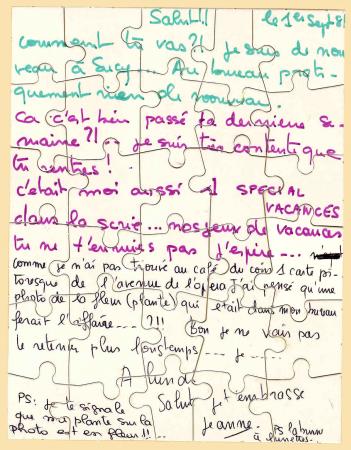 Salut!! le 1er Sept 8
comment tu vas?! je suis de nou
veau à Sucy... Au bureau prati-
quement rien de nouveau.
Ca c'est bien passé ta dernière se-
maine?! je suis très contente que
tu rentres!
c'était moi aussi 1 SPECIAL
VACANCES
dans la série... nos jeux de vacances
tu ne t'ennuies pas j'espère...
comme je n'ai pas trouvé au café du coin 1 carte pi-
toresque de l'avenue de l'opéra j'ai pensé qu'une
photo de la fleur (plante) qui était dans mon bureau
ferait l'affaire.... ?!!
Bon je ne vais pas
te retenir plus longtemps.... je .....
A lundi
Salut je t'embrasse
jeanne.
PS: je te signale
que ma plante sur la
photo est en fleur!!..
PS la brune
à lunettes.